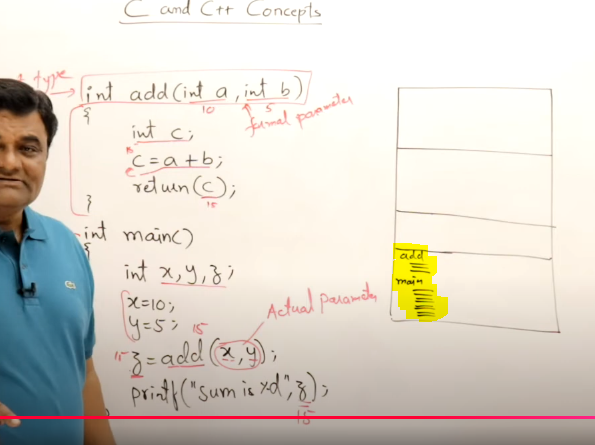 C and C++ Concepts
type
int add(int a, int b)
10 5
formal parameter
{
int c;
c=a+b;
return(c);
15
}
int main()
{
int x,y,z;
x=10;
y=5;
Actual Parameter
15
15 z=add(x,y);
printf("sum is %d",z);
15
}
add
main